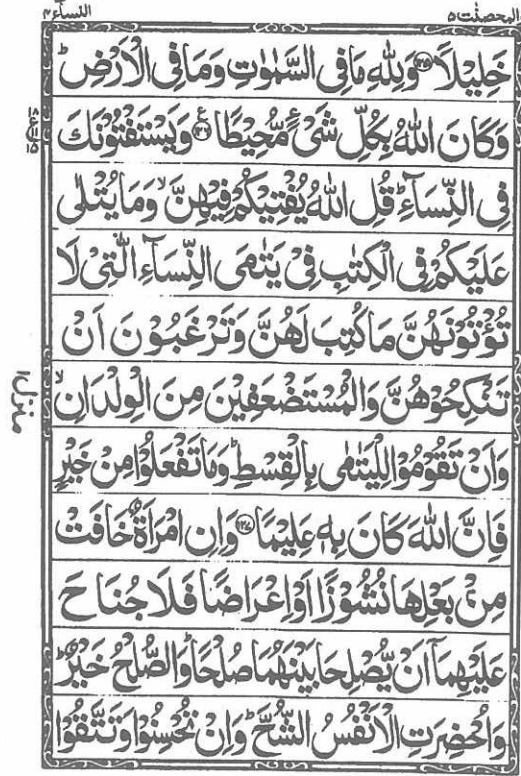 المحصنت ٥
النسآء ٤
خَلِيْلًا ﴿١٢٥﴾ وَلِلّٰهِ مَا فِى السَّمٰوٰتِ وَمَا فِى الْاَرْضِ ؕ
وَكَانَ اللّٰهُ بِكُلِّ شَىْءٍ مُّحِيْطًا ﴿١٢٦﴾ وَيَسْتَفْتُوْنَكَ
فِى النِّسَآءِ ؕ قُلِ اللّٰهُ يُفْتِيْكُمْ فِيْهِنَّ ۙ وَمَا يُتْلٰى
عَلَيْكُمْ فِى الْكِتٰبِ فِىْ يَتٰمَى النِّسَآءِ الّٰتِىْ لَا
تُؤْتُوْنَهُنَّ مَا كُتِبَ لَهُنَّ وَتَرْغَبُوْنَ اَنْ
تَنْكِحُوْهُنَّ وَالْمُسْتَضْعَفِيْنَ مِنَ الْوِلْدَانِ ۙ
وَاَنْ تَقُوْمُوْا لِلْيَتٰمٰى بِالْقِسْطِ ؕ وَمَا تَفْعَلُوْا مِنْ خَيْرٍ
فَاِنَّ اللّٰهَ كَانَ بِهٖ عَلِيْمًا ﴿١٢٧﴾ وَاِنِ امْرَاَةٌ خَافَتْ
مِنْۢ بَعْلِهَا نُشُوْزًا اَوْ اِعْرَاضًا فَلَا جُنَاحَ
عَلَيْهِمَآ اَنْ يُّصْلِحَا بَيْنَهُمَا صُلْحًا ؕ وَالصُّلْحُ خَيْرٌ ؕ
وَاُحْضِرَتِ الْاَنْفُسُ الشُّحَّ ؕ وَاِنْ تُحْسِنُوْا وَتَتَّقُوْا
منزل ١